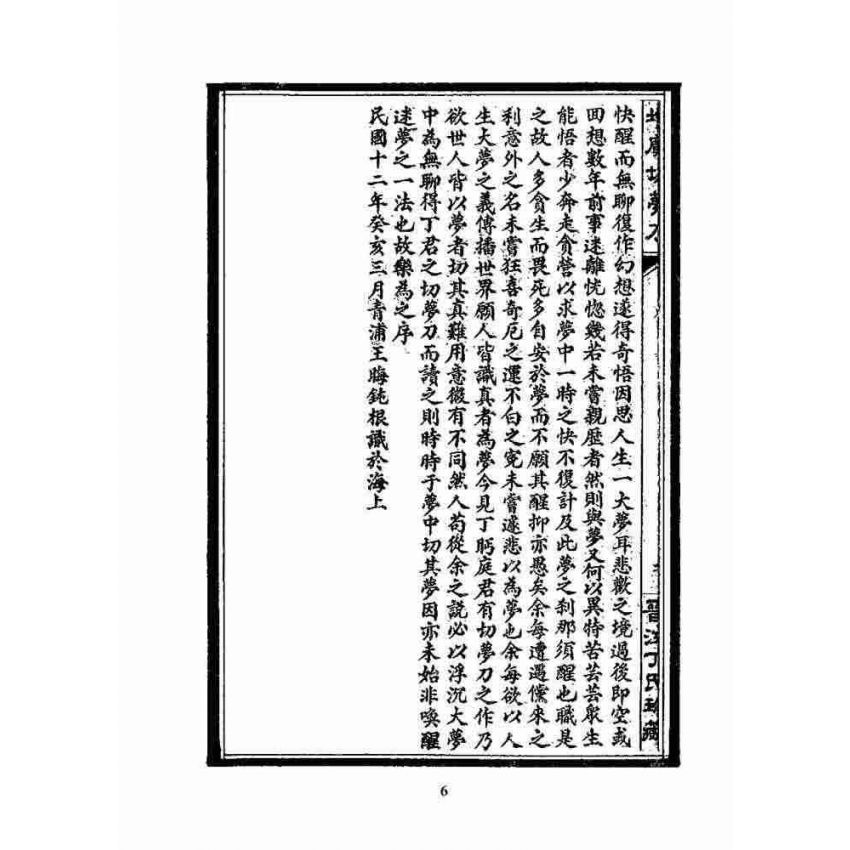 快醒而無聊復作幻想遂得奇悟因思人生一大夢耳悲歡之境過後即空或
回想數年前事迷離恍惚幾若未嘗親歷者然則與夢又何以異特苦芸芸眾生
能悟者少奔走貪營以求夢中一時之快不復計及此夢之剎那須醒也職是
之故人多貪生而畏死多自安於夢而不願其醒抑亦愚矣余每遭遇儻來之
利意外之名未嘗狂喜奇厄之運不白之冤未嘗遽悲以為夢也余每欲以人
生大夢之義傳播世界願人皆識真者為夢今見丁眄庭君有切夢刀之作乃
欲世人皆以夢者切其真雖用意微有不同然人苟從余之說必以浮沉大夢
中為無聊得丁君之切夢刀而讀之則時時于夢中切其夢因亦未始非喚醒
迷夢之一法也故樂為之序
民國十二年癸亥三月青浦王晦鈍根識於海上
切夢刀
晉江丁氏珍藏
6